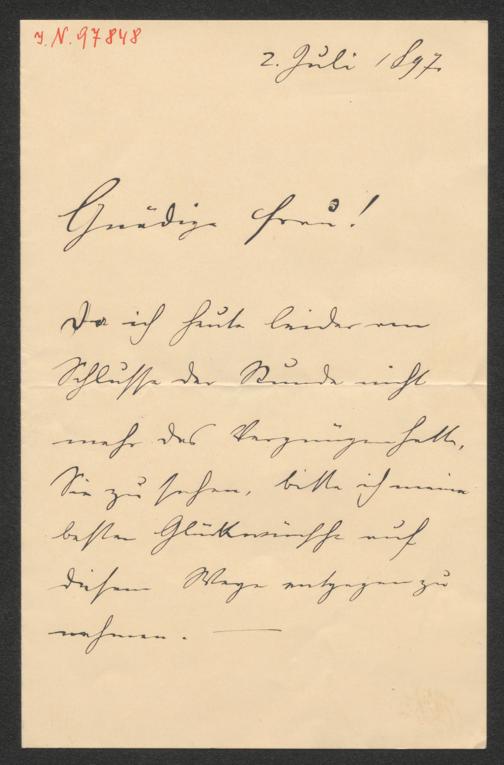 I. N. 97848
2. Juli 1897.
Gnädige Frau!
Da ich heute leider am
Schlusse der Stunde nicht
mehr das Vergnügen hatte,
Sie zu sehen, bitte ich meine
besten Glückwünsche auf
diesem Wege entgegen zu
nehmen. —